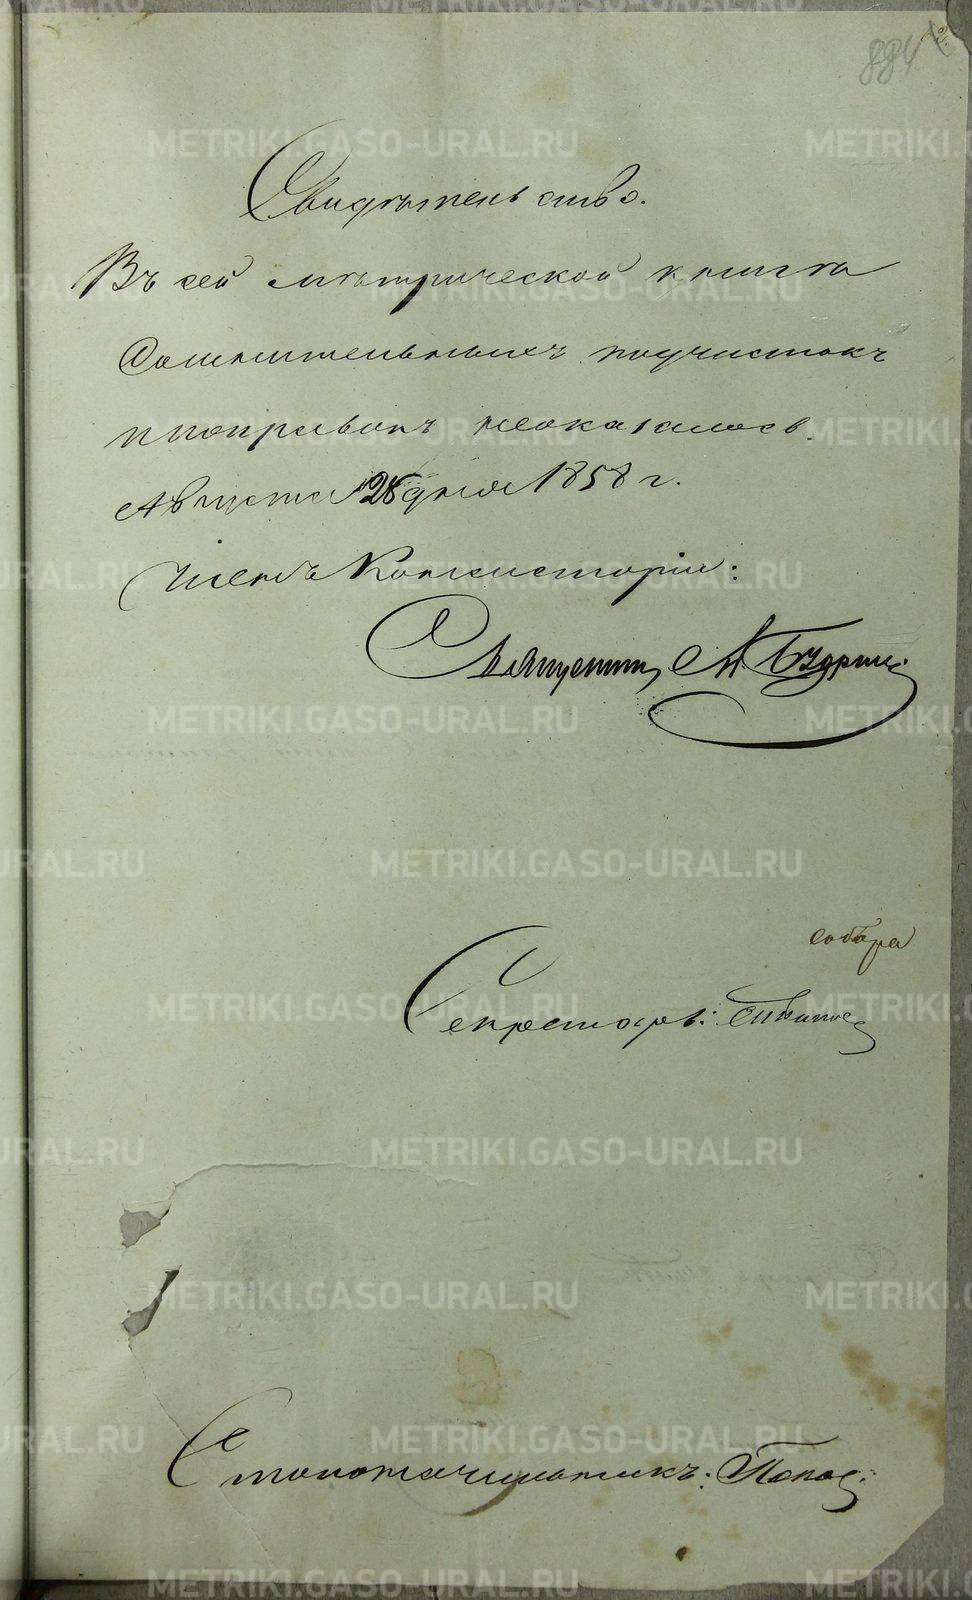 884
Свидѣтельство.
Въ сей метрической книге
Сомнительныхъ подчистокъ
и поправокъ неоказалось.
Августа 28 дня 1858 г.
Членъ Консисторіи:
Священникъ
собора
Секретарь:
Столоначальникъ: Поповъ
METRIKI.GASO-URAL.RU